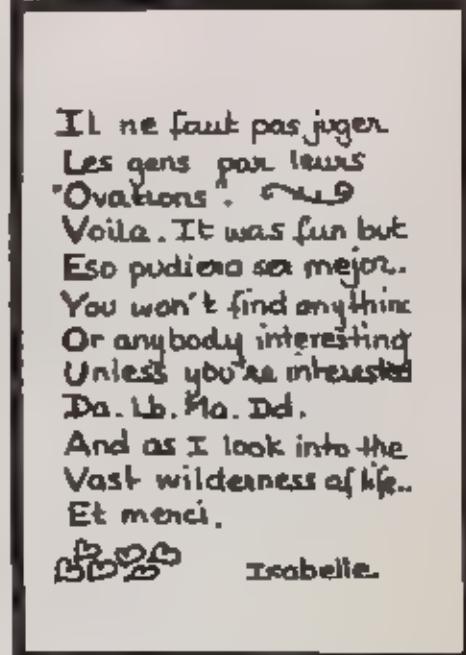 Il ne faut pas juger
Les gens par leurs
"Ovations".
Voila. It was fun but
Eso pudiera ser mejor.
You won't find anything
Or anybody interesting
Unless you're interested
Da. Lb. Ma. Dd.
And as I look into the
Vast wilderness of life..
Et merci.
Isabelle.